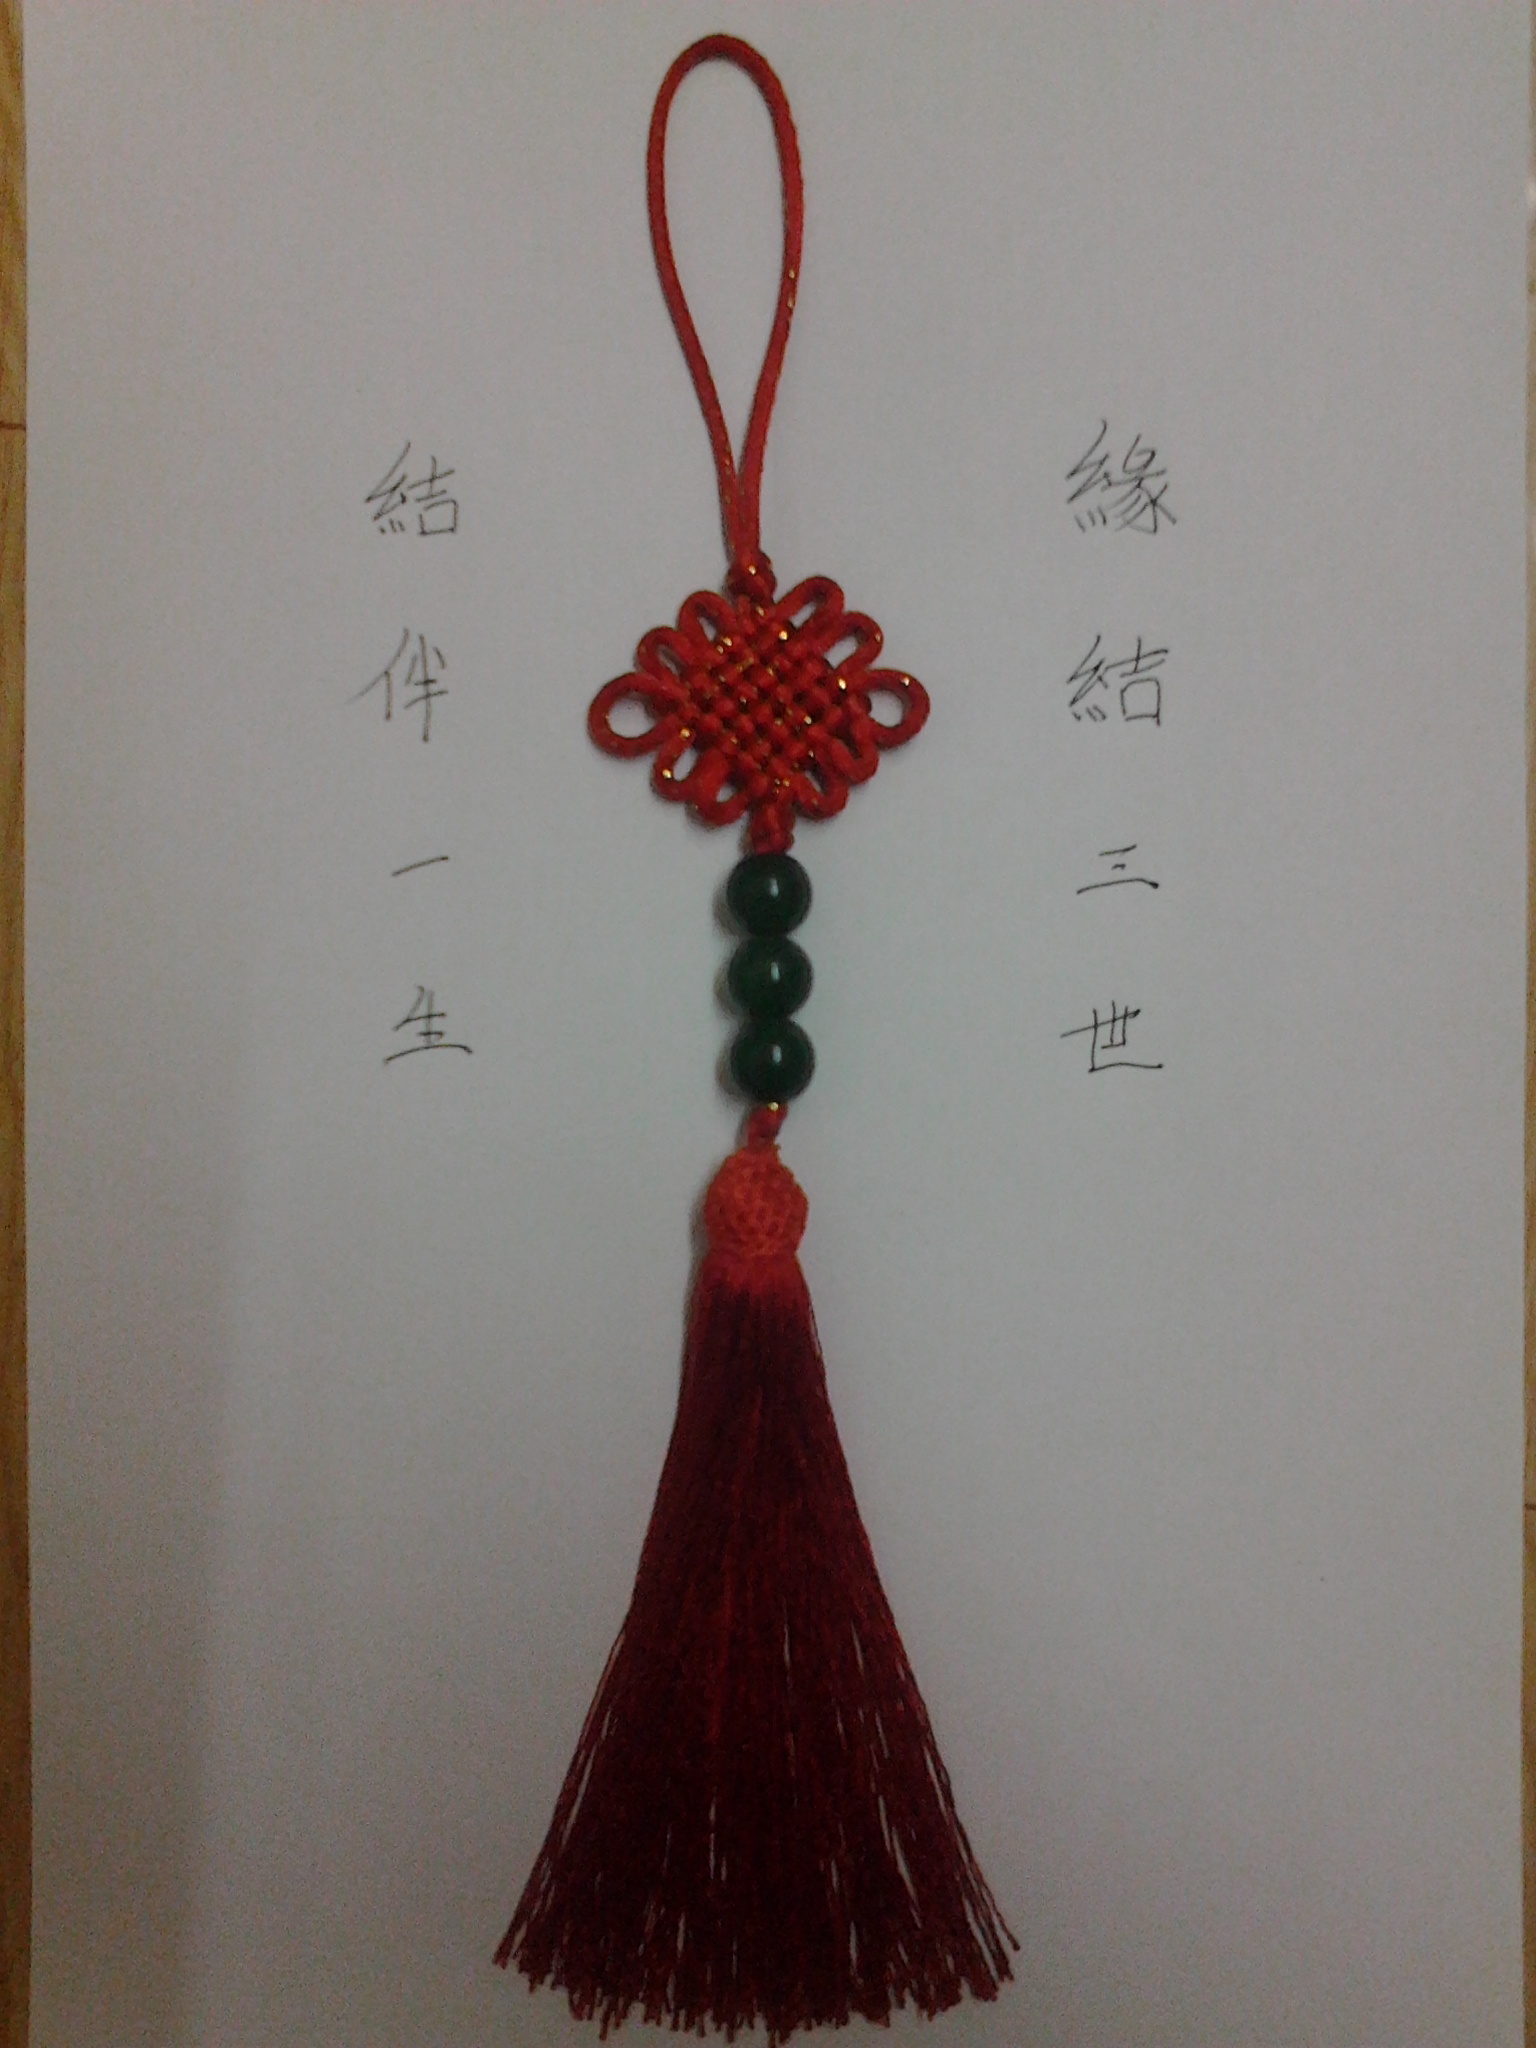 緣結三世
結伴一生